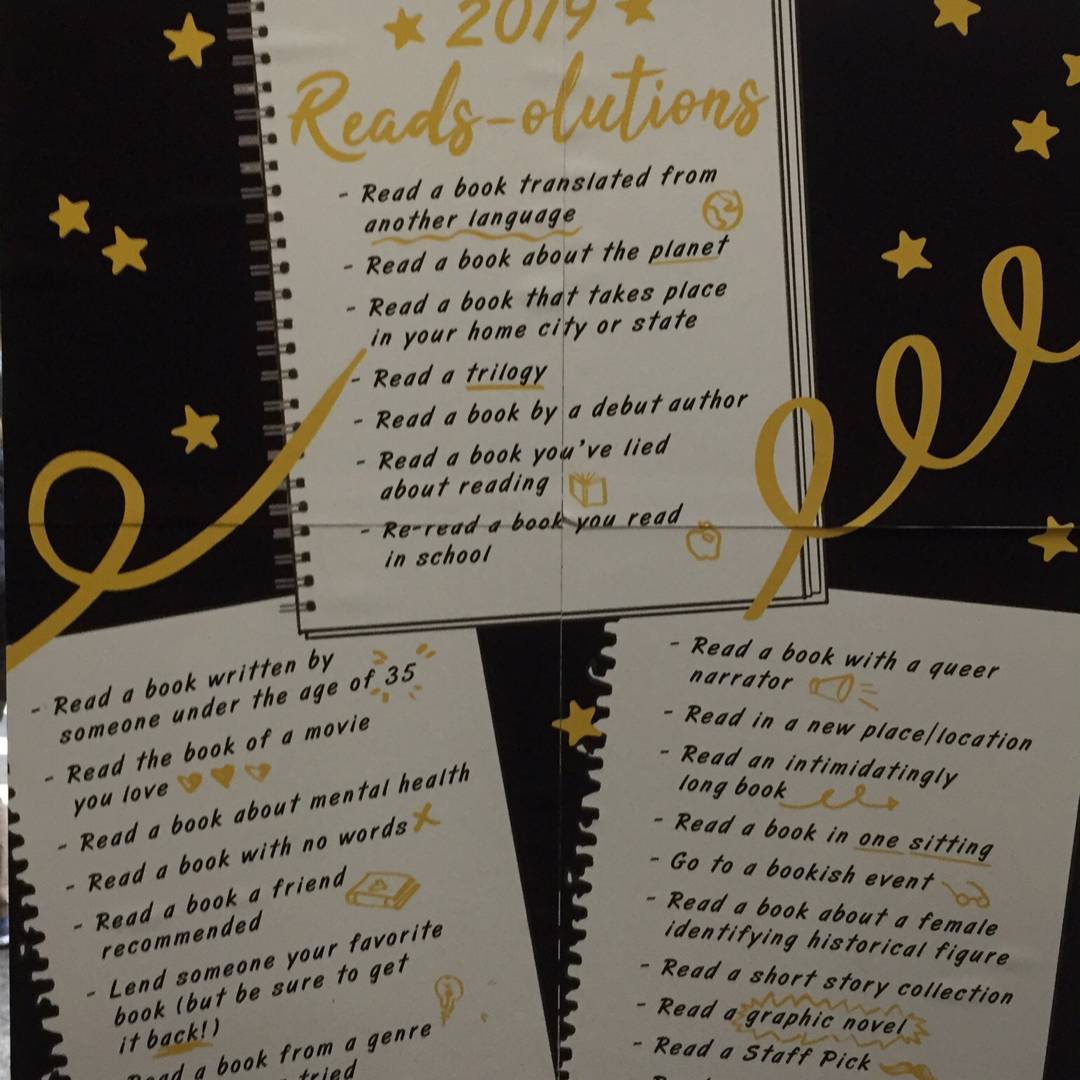 2019
Reads-olutions
- Read a book translated from
another language
- Read a book about the planet
- Read a book that takes place
in your home city or state
- Read a trilogy
- Read a book by a debut author
- Read a book you've lied
about reading
- Re-read a book you read
in school
- Read a book written by
someone under the age of 35
- Read the book of a movie
you love
- Read a book about mental health
- Read a book with no words
- Read a book a friend
recommended
- Lend someone your favorite
book (but be sure to get
it back!)
Read a book from a genre
tried
- Read a book with a queer
narrator
- Read in a new place/location
- Read an intimidatingly
long book
- Read a book in one sitting
- Go to a bookish event
- Read a book about a female
identifying historical figure
- Read a short story collection
- Read a graphic novel
- Read a Staff Pick